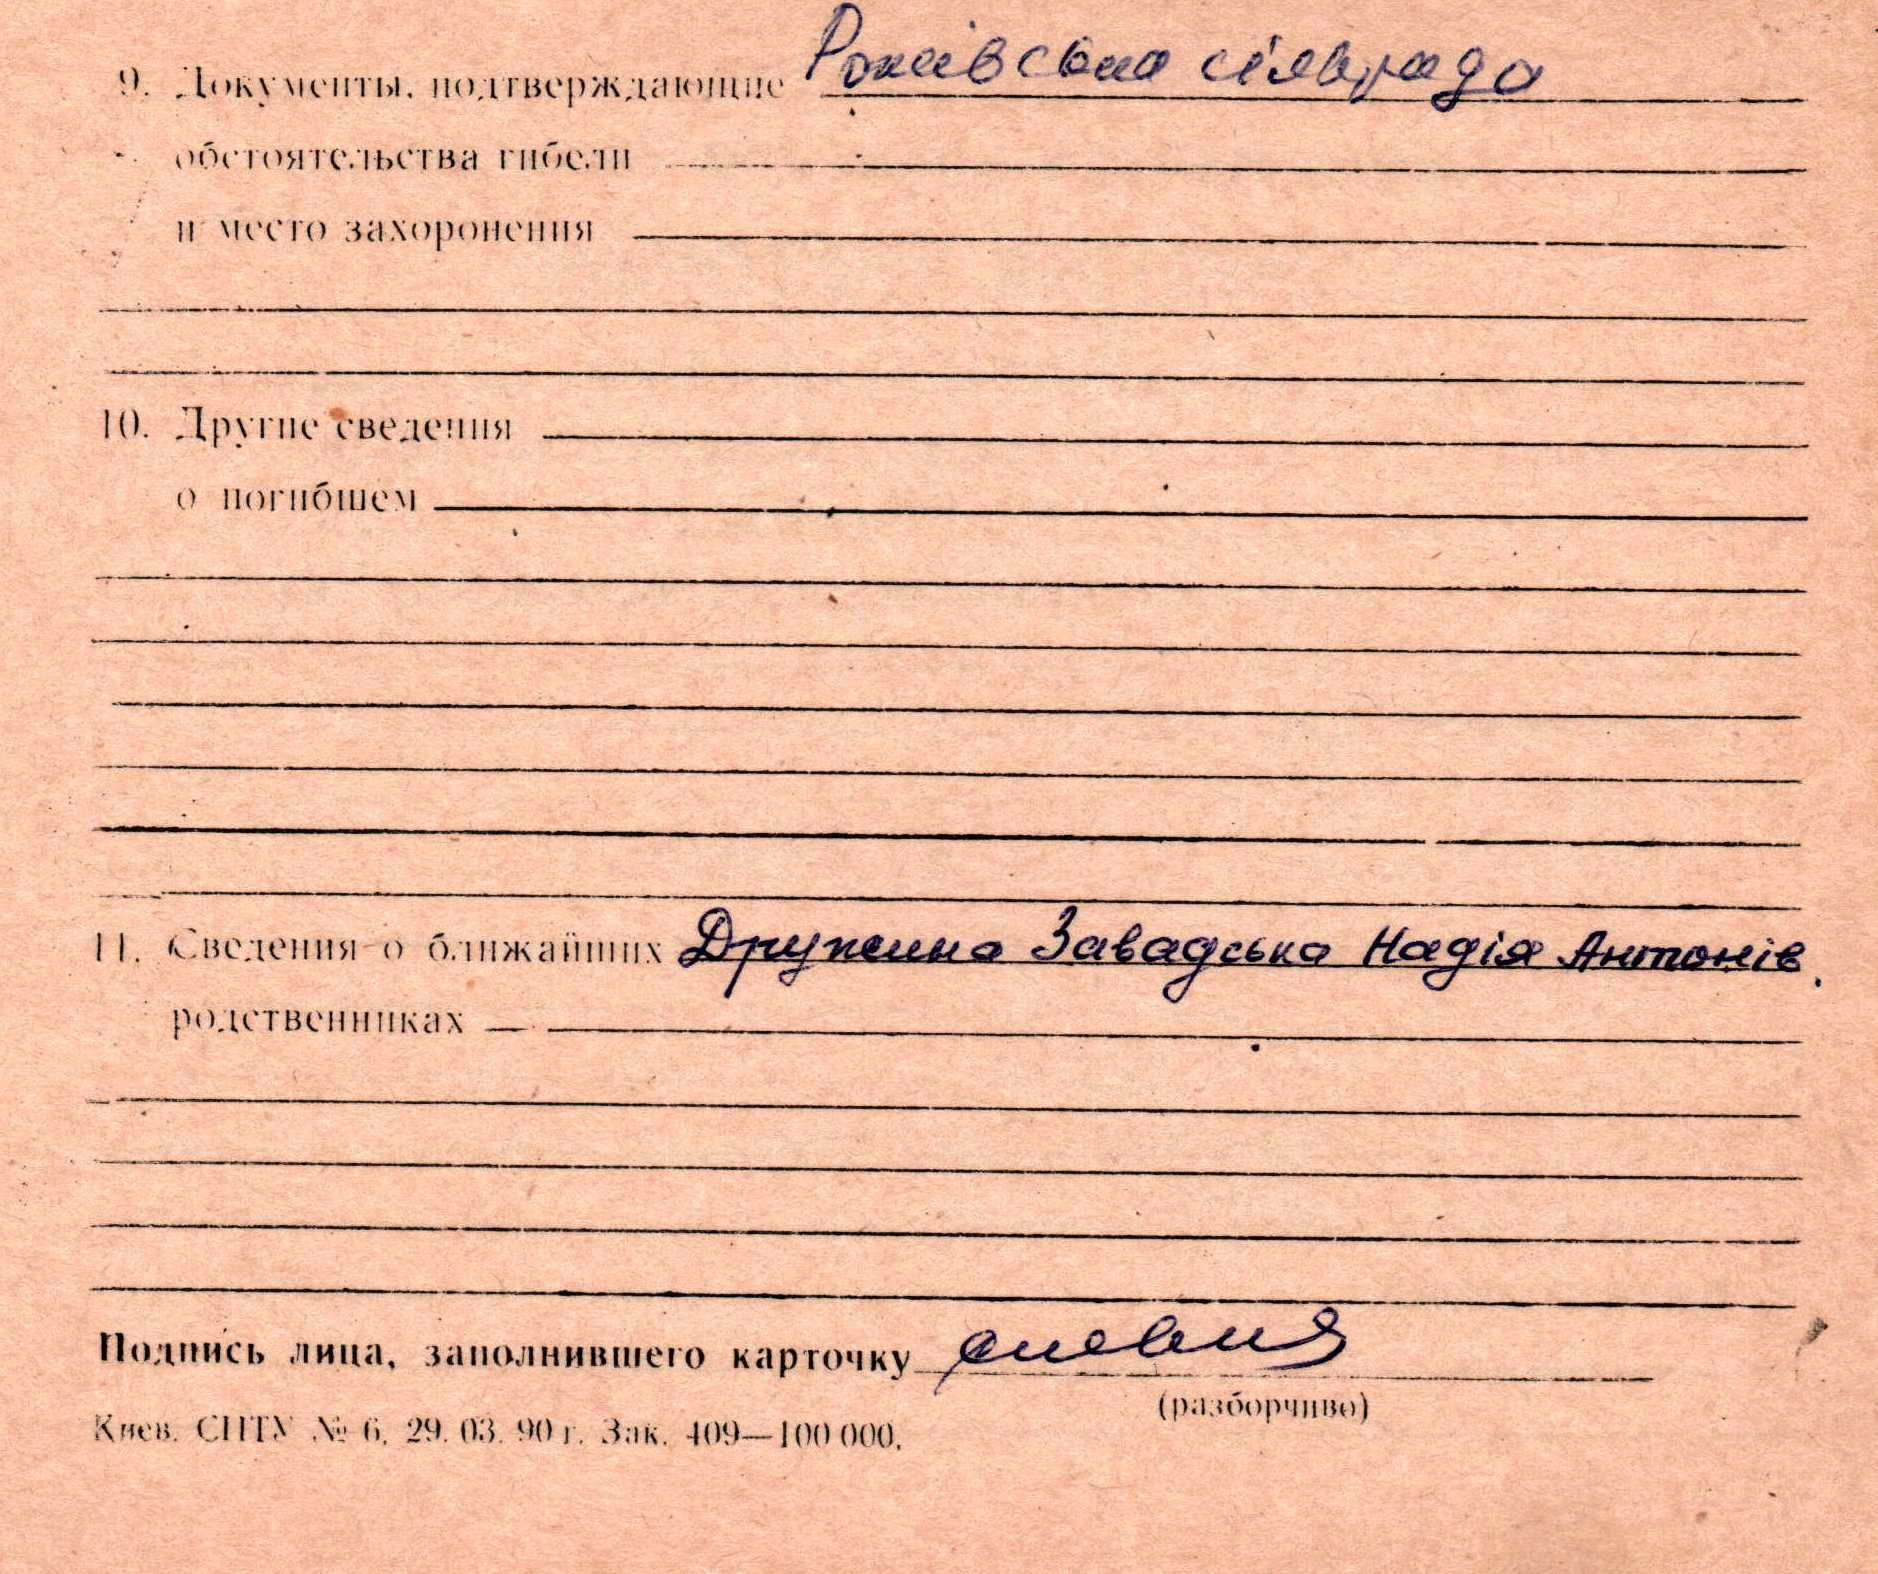 9. Документы, подтверждающие сільрада
обстоятельства гибели
и место захоронения
10. Другие сведения
о погибшем
11. Сведения о ближайших Дружина Завадська Надія Антонів.
родственниках
Подпись лица, заполнившего карточку
(разборчиво)
Киев. СПТУ № 6. 29. 03. 90 г. Зак. 409—100 000.